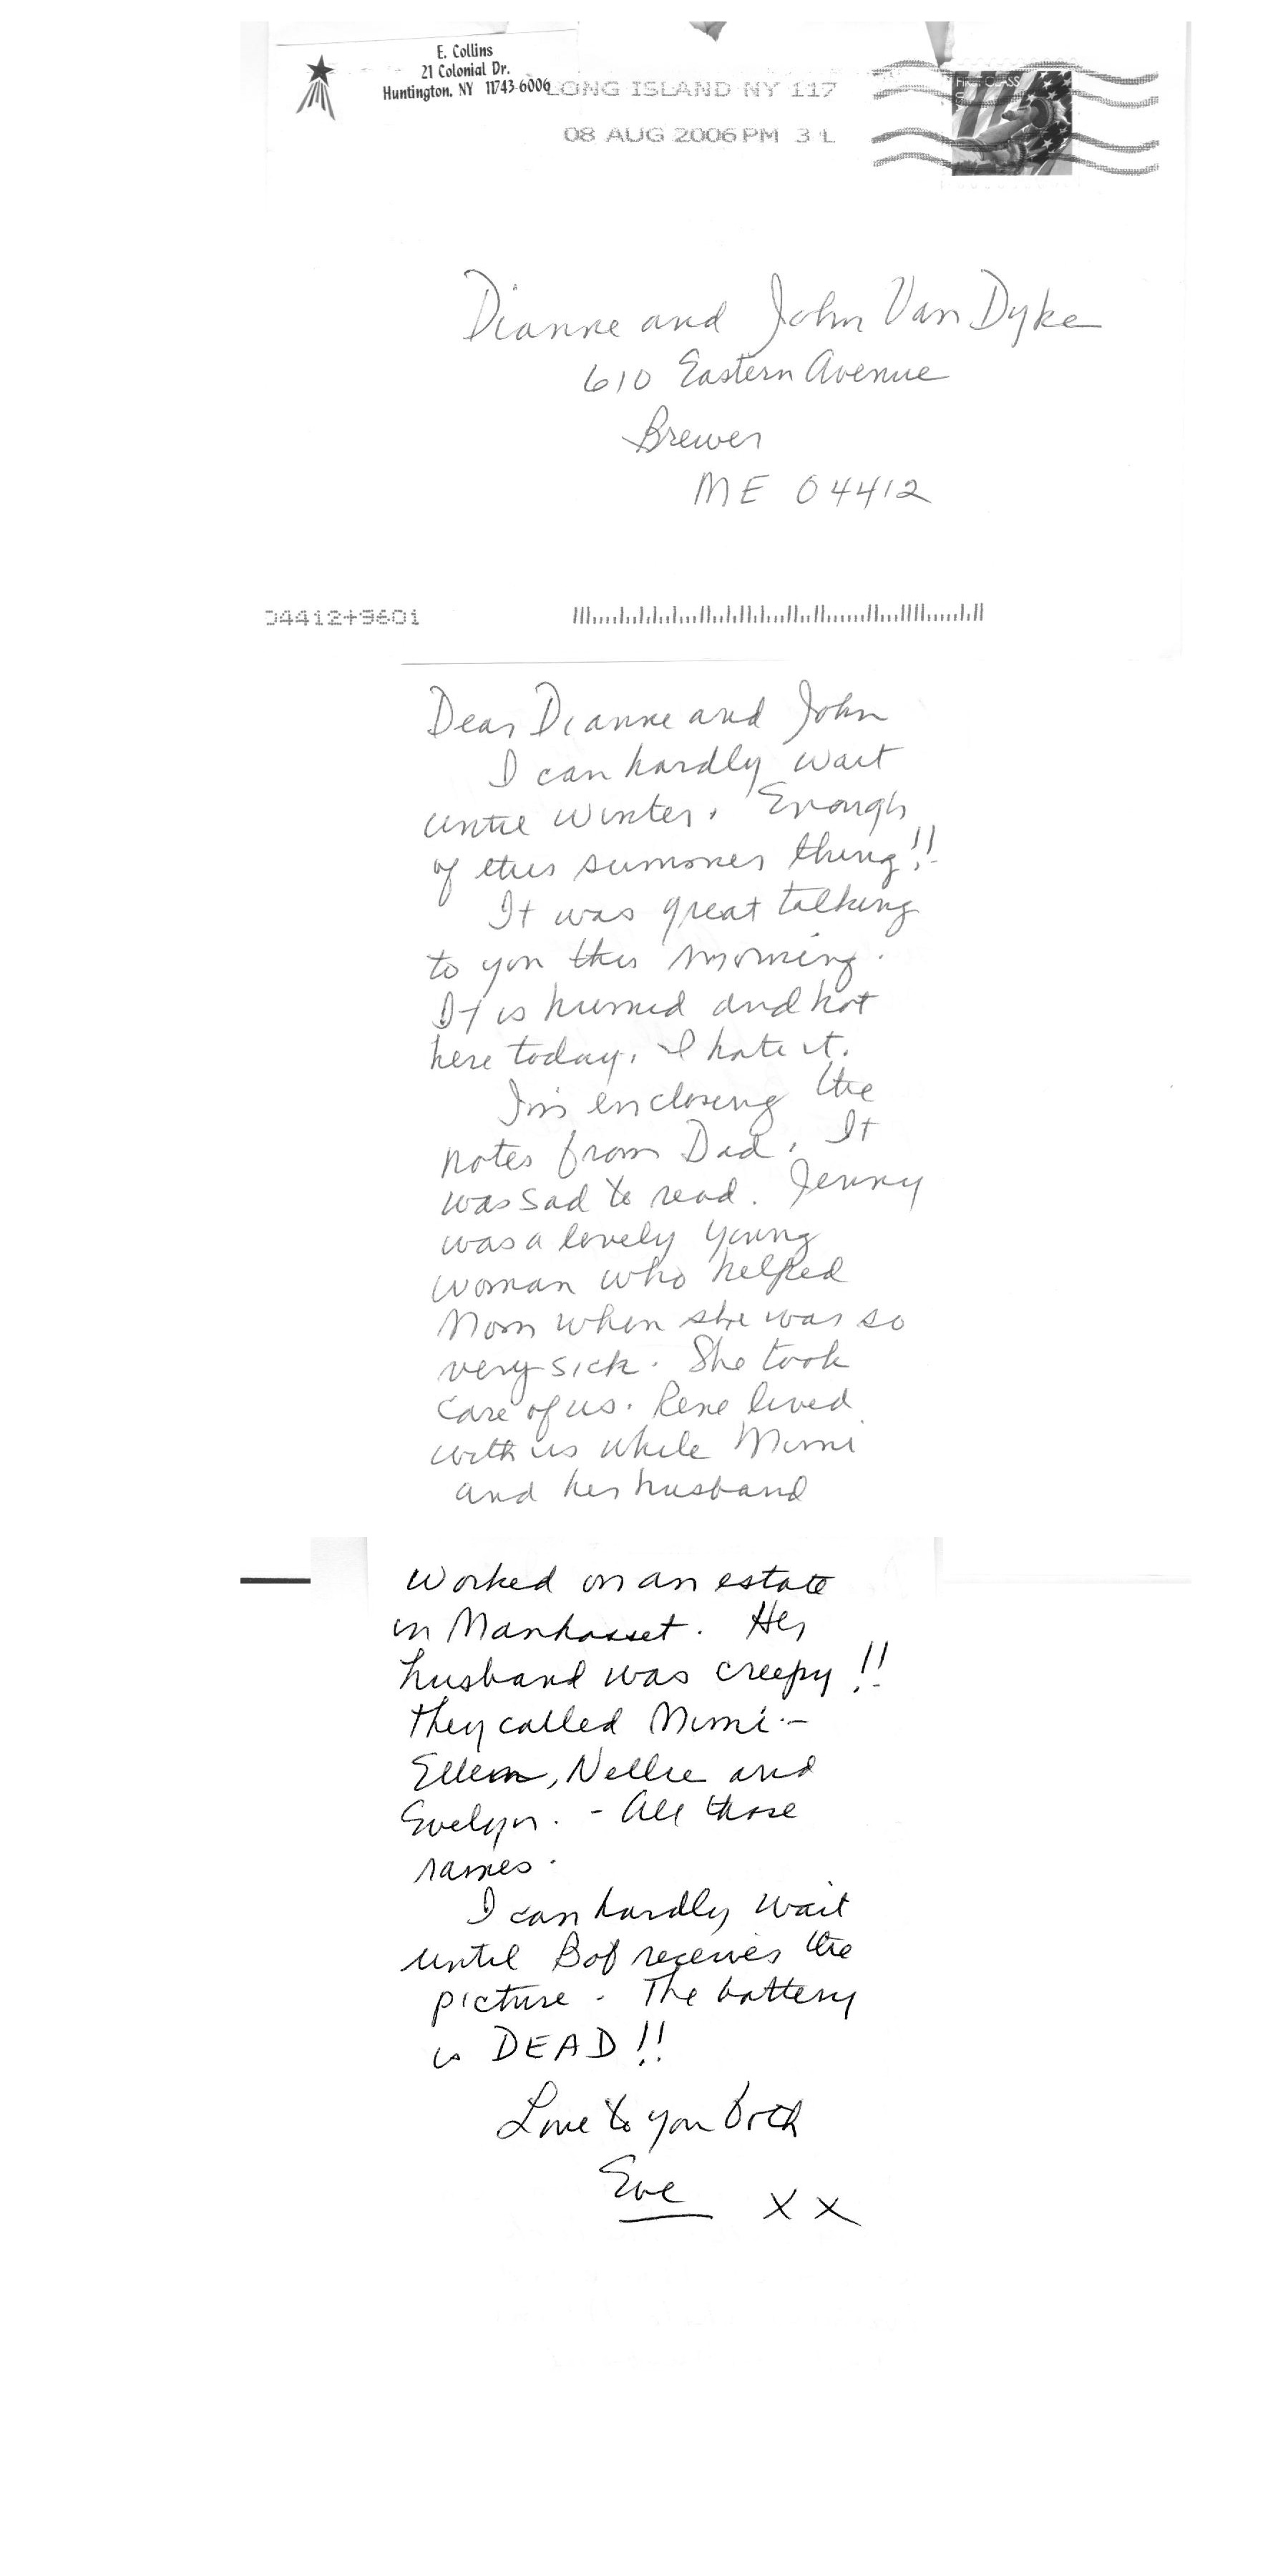 E. Collins
21 Colonial Dr.
Huntington, NY 11743-6006
LONG ISLAND NY 117
08 AUG 2006 PM 3 L
FIRST CLASS
Dianne and John Van Dyke
610 Eastern Avenue
Brewer
ME 04412
04412+9601
Dear Dianne and John
I can hardly wait
until winter. Enough
of this summer thing!!
It was great talking
to you this morning.
It is humid and hot
here today. I hate it.
I'm enclosing the
notes from Dad. It
was sad to read. Jenny
was a lovely young
woman who helped
Mom when she was so
very sick. She took
care of us. Rene lived
with us while Mimi
and her husband
worked on an estate
in Manhasset. Her
husband was creepy!!
They called Mimi -
Ellen, Nellie and
Evelyn. - All those
names.
I can hardly wait
until Bob receives the
picture. The battery
is DEAD!!
Love to you both
Eve XX